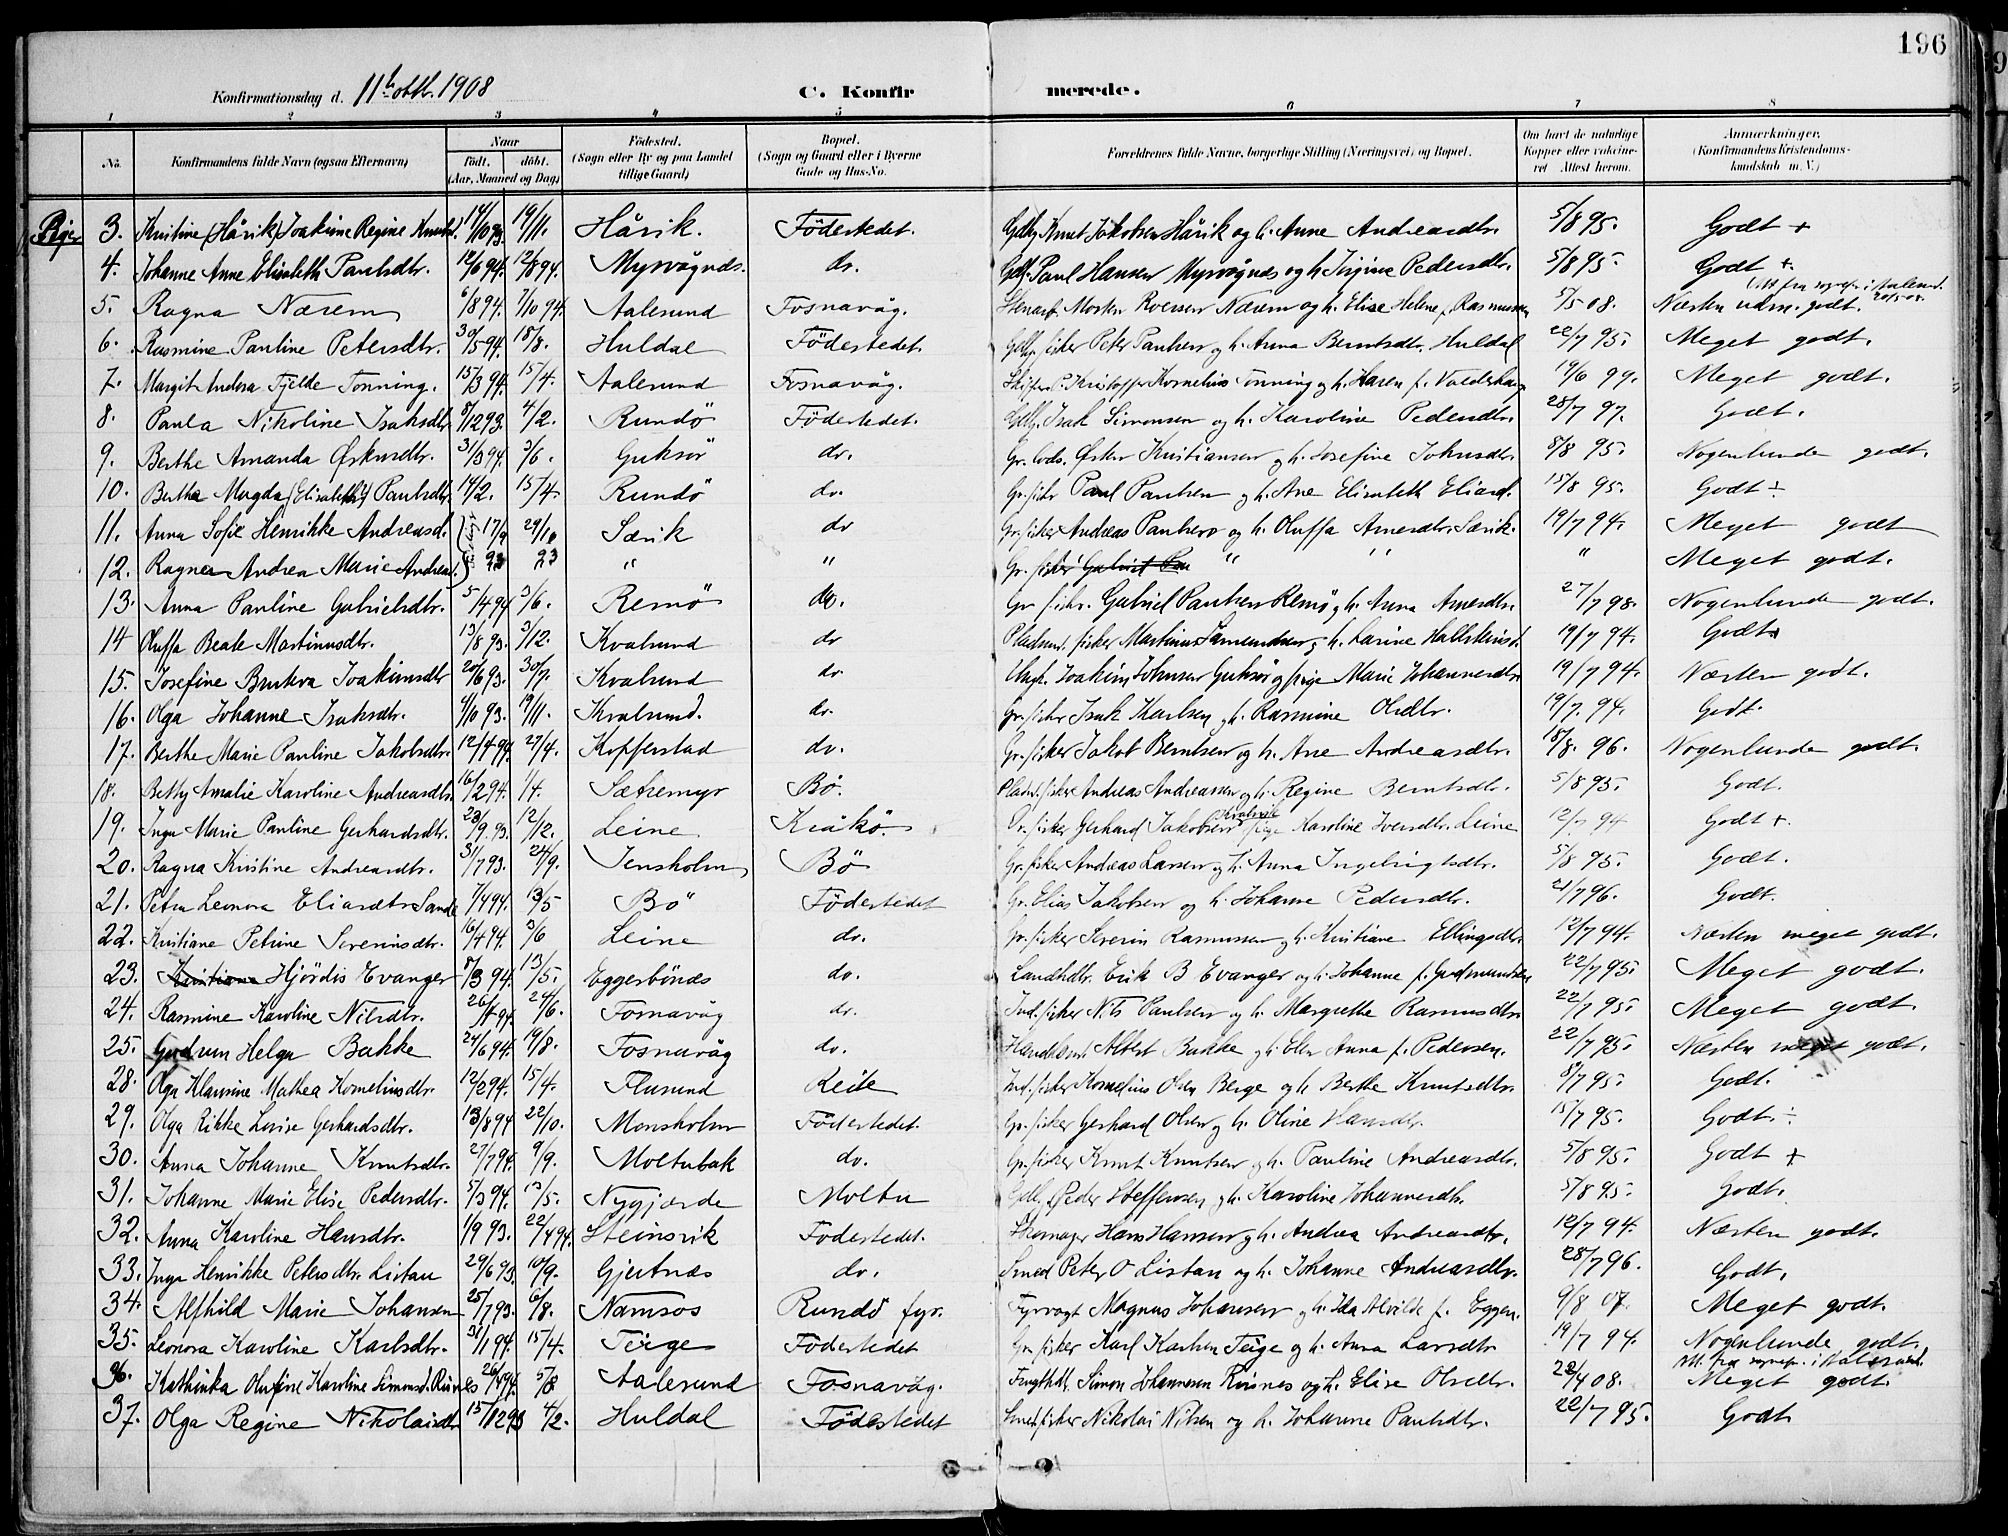 196
Konfirmationsdag d. 11te oktbr. 1908 C. Konfirmerede.
1 2 3 4 5 6 7 8
No. Konfirmandens fulde Navn (ogsaa Efternavn) Naar födt. döbt. (Aar, Maaned og Dag) Födested. (Sogn eller By og paa Landet tillige Gaard) Bopæl. (Sogn og Gaard eller i Byerne Gade og Hus-No. Forældrenes fulde Navne, borgerlige Stilling (Næringsvei) og Bopæl. Om havt de naturlige Kopper eller vaccineret Attest herom. Anmærkninger. (Konfirmandens Kristendomskundskab m. V.)
Piger
3. Kristine (Hårik) Joakime Regine Knutsd. 14/10 93. 19/11. Hårik. Födestedet. Gdbr Knut Jakobsen Hårik og h. Anne Andreasdtr. 5/8 95. Godt +
4. Johanne Anne Elisabeth Paulsdtr. 12/6 94. 12/8 94. Myrvågnæs. do. Gdb. Paul Hansen Myrvågnæs og h. Jørgine Pedersdtr. 5/8 95. Godt +
5. Ragna Nærem 6/8 94. 7/10 94. Aalesund Fosnavåg. Stenarb. Morten Nærem og h. Elise Helene f. Rasmussen 5/5 08. Næsten udm. godt.
6. Rasmine Pauline Petersdtr. 30/5 94. 18/8. Huldal Födestedet. Gdbr. fisker Peter Paulsen og h. Anna Berntsdtr. Huldal 22/7 95. Meget godt.
7. Margit Andrea Fjelde Tonning. 15/3 94. 15/4. Aalesund Fosnavåg. Skipper Kristoffer Kornelius Tonning og h. Karen f. Valderhaug 19/6 99. Meget godt.
8. Paula Nikoline Isaksdtr 8/12 93. 4/2. Rundö Födestedet. Gdbr. Isak Simonsen og h. Karoline Pedersdtr. 28/7 97. Godt.
9. Berthe Amanda Øskarsdtr. 31/3 94. 3/6. Gurskör do. Gr. Øskar Kristiansen og h. Josefine Johnsdtr. 8/8 95. Nogenlunde godt.
10. Bertha Magda (Elisabeth) Paulsdtr 14/2. 15/4. Rundö do. Gr. fisker Paul Paulsen og h. Ane Elisabeth Eliasd. 15/8 95. Godt ÷
11. Anna Sofie Henrikke Andreasd. 17/9 29/10 Særik do Gr. fisker Andreas Paulsen og h. Oluffa Arnesdtr. Særik. 19/7 94. Meget godt
12. Ragna Andrea Marie Andreasd. 93 93 " " Gr. fisker " " " Meget godt.
13. Anna Pauline Gabrielsdtr. 5/4 94 3/6. Remö do. Gr. fisker. Gabriel Paulsen Remö og h. Anna Arnesdtr. 27/7 98. Nogenlunde godt.
14 Oluffa Beate Martinusdtr. 13/8 93. 3/12. Kvalsund do Pladsmd. fisker Martinus og h. Larine Hallsteinsd. 19/7 94. Godt
15. Josefine Joakimsdtr 20/6 93. 30/7. Kvalsund do. Ungk. Joakim Johnsen Gurskör og pige Marie Johannesdtr. 19/7 94. Næsten godt.
16. Olga Johanne Isaksdtr. 4/10 93. 19/11. Kvalsund. do. Gr. fisker Isak Karlsen og h. Rasmine Olsdtr. 19/7. 94. Godt.
17. Berthe Marie Pauline Jakobsdtr. 12/4 94. 27/4. Kopperstad do. Gr. fisker Jakob Berntsen og h. Ane Andreasdtr. 18/8. 96. Nogenlunde godt.
18. Betty Amalie Karoline Andreasdtr. 16/2 94. 1/4. Sætremyr Bö. Pladsm. fisker Andreas Andreassen og h. Regine Berntsdtr. 5/8 95. Godt.
19. Inga Marie Pauline Gerhardsdtr. 23/9. 93. 12/2. Leine Kråkö. Gr. fisker Gerhard Jakobsen Kvalsvik pige Karoline Iversdtr. Leine 12/7 94 Godt +.
20. Ragna Kristine Andreasdtr. 31/7 93. 24/9. Jensholm Bö Gr. fisker Andreas Larsen og h. Anna Ingebrigtsdtr. 5/8 95. Godt.
21. Petra Leonora Eliasdtr Sande 7/4 94. 13/5 Bö Födestedet Gr. Elias Jakobsen og h. Johanne Pedersdtr. 21/7 96. Godt.
22. Kristiane Petrine Severinsdtr. 16/4 94. 3/6 Leine do. Gr. fisker Severin Rasmussen og h. Kristiane Ellingsdtr. 12/7 94. Næsten meget godt.
23. Kristiane Hjördis Evanger 8/3 94. 13/5. Eggesbönæs do. Landhdlr. Erik B Evanger og h. Johanne f. Gudmundsen 22/7 95. Meget godt.
24. Rasmine Karoline Nilsdtr. 26/4 94. 24/6. Fosnavåg do. Ind. fisker Nils Paulsen og h. Margrethe Rasmusdtr. 22/7 95. Meget godt.
25. Gudrun Helga Bakke 24/6 94. 19/8. Fosnavåg do. Handelsmd. Albert Bakke og h. Ellen Anna f. Pedersen. 22/7 95. Næsten meget godt.
28. Olga Klausine Mathea Korneliusdtr. 12/2 94. 15/4. Flusund Reite Ind. fisker Kornelius Olsen Berge og h. Berthe Knutsdtr. 8/7 95. Godt.
29. Olga Rikke Lovise Gerhardsdtr. 13/8 94 22/10. Monsholm Födestedet. Gr. fisker Gerhard Olsen og h. Oline Hansdtr. 15/7 95. Godt. ÷
30. Anna Johanne Knutsdtr. 27/7 94. 9/9. Moltubak do. Gr. fisker Knut Knutsen og h. Pauline Andreasdtr. 5/8 95. Godt +
31. Johanne Marie Elise Pedersdtr. 5/3 94. 13/5. Nygjærde Moltu Gdbr. Peder Steffensen og h. Karoline Johannesdtr. 5/8 95. Godt.
32. Anna Karoline Hansdtr. 1/9 93. 22/4 94. Steinsvik Födestedet. Skomager Hans Hansen og h. Andrea Andreasdtr. 12/7 94. Næsten godt.
33. Inga Henrikke Petersdtr. Listau 29/6 93. 10/9. Gjertnæs do. Smed Peter O Listau og h. Johanne Andreasdtr. 28/7 96. Godt.
34. Alfhild Marie Johansen 25/7 93. 6/8. Namsos Rundö fyr. Fyrvogt Magnus Johansen og h. Ida Alvilde f. Eggen. 9/8 07. Meget godt.
35. Leonora Karoline Karlsdtr. 31/1 94. 15/4. Teige Födestedet Gr. fisker Karl Karlsen Teige og h. Anna Larsdtr 19/7 94. Nogenlunde godt.
36. Kathinka Olufine Karoline Simonsd. Risnes 26/4 94. 5/8 Aalesund Fosnavåg. Simon Johannesen Risnes og h. Elise Olsdtr. 22/4 08. Meget godt.
37. Olga Regine Nikolaisdtr 15/12 93 4/2. Huldal Födestedet fisker Nikolai Nilsen og h. Johanne Paulsdtr. 22/7 95. Godt